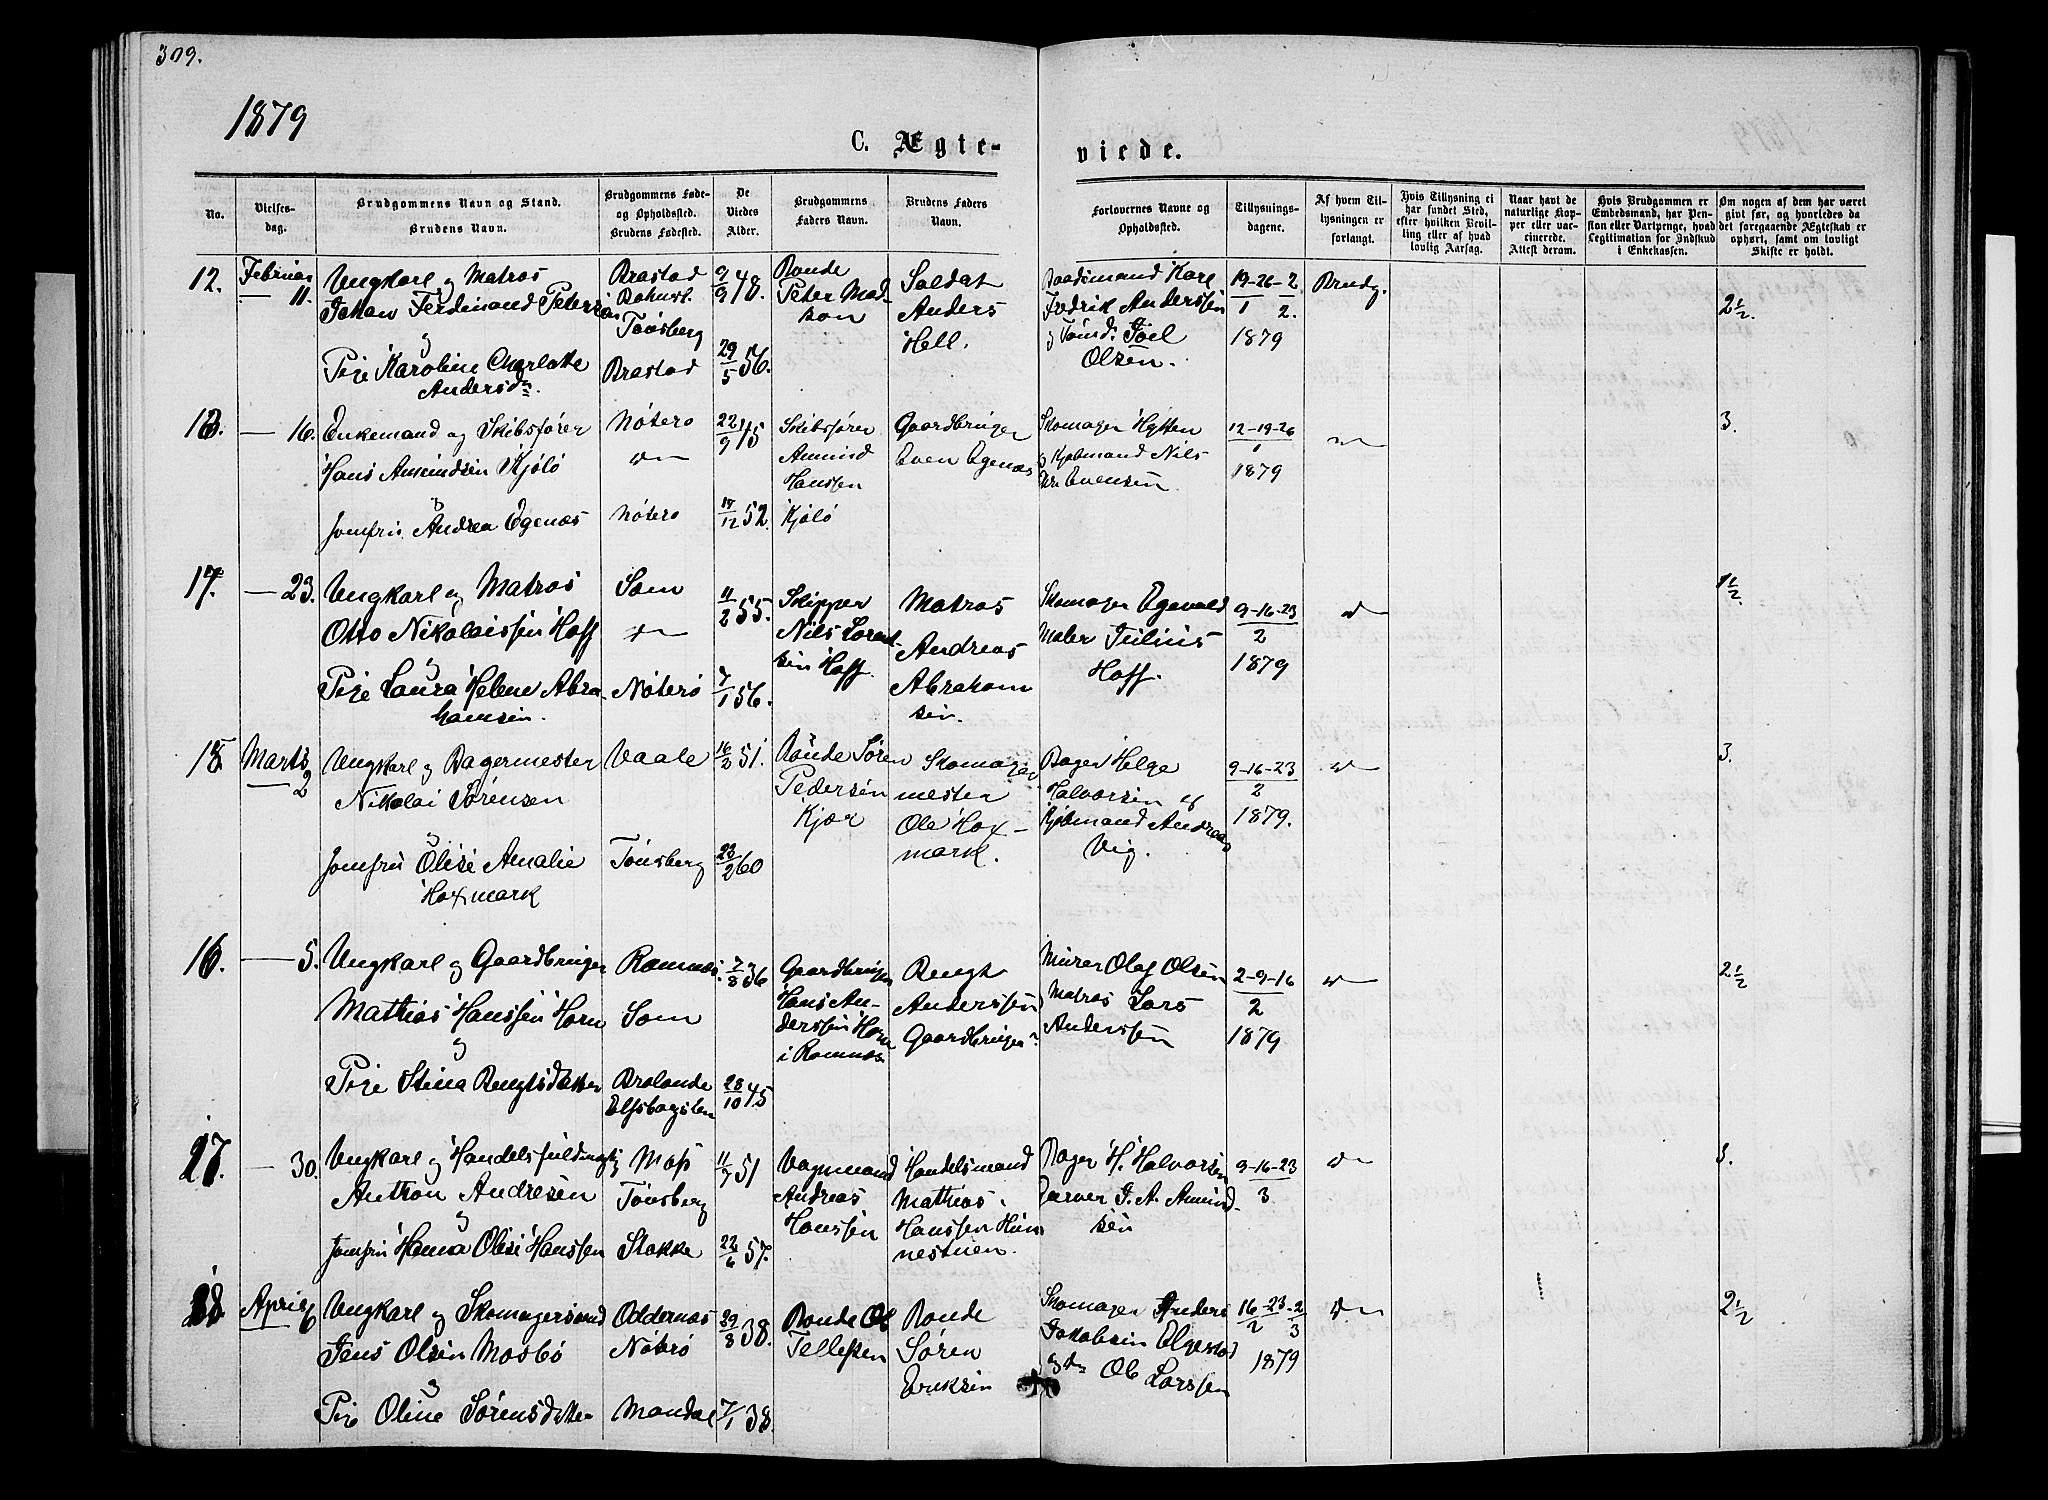 309.
1879
C. Ægte-
viede.
No.
Vielses-
dag.
Brudgommens Navn og Stand.
Brudens Navn.
Brudgommens Føde-
og Opholdssted.
Brudens Fødested.
De
Viedes
Alder.
Brudgommens
Faders Navn.
Brudens Faders
Navn.
Forlovernes Navne og
Opholdssted.
Tillysnings-
dagene.
Af hvem Til-
lysningen er
forlangt.
Hvis Tillysning ei
har fundet Sted,
efter hvilken Bevil-
ling eller af hvad
lovlig Aarsag.
Naar havt de
naturlige Kop-
per eller vac-
cinerede.
Attest derom.
Hvis Brudgommen er
Embedsmand, har Pen-
sion eller Vartpenge, hvad
Legitimation for Indskud
i Enkekassen.
Om nogen af dem har været
givt før, og hvorledes da
det foregaaende Ægteskab er
ophørt, samt om lovligt
Skifte er holdt.
12.
Februar
— 11.
Ungkarl og Matros
Johan Ferdinand Peterson
og
Pige Karoline Charlotte
Andersdn.
Brastad
Bahusl.
Tönsberg
Brastad
9/9 48.
29/5 56.
Bonde
Peter Mad-
son
Soldat
Anders
Hell.
Baadsmand Karl
Fredrik Anderssen
og Tömd. Joel
Olsen.
19-26-2
1 2.
1879
Brudg.
2 1/2.
13.
— 16.
Enkemand og Skibsfører
Hans Amundsen Kjölö
og
Jomfru Andrea Egenæs
Nöterö
Nöterö
22/9 45
17/12 52.
Skibsfører
Amund
Hanssen
Kjölö
Gaardbruger
Even Egenæs
Skomager Hytten
og Kjøbmand Nils
Chr. Evensen
12-19-26
1
1879
3.
14.
— 23.
Ungkarl og Matros
Otto Nikolaissen Hoff
og
Pige Laura Helene Abra-
hamsen.
Sem
Nöterö
11/2 55.
7/1 56.
Skipper
Nils Lorent-
sen Hoff.
Matros
Andreas
Abraham
sen.
Skomager Egevald
Maler Julius
Hoff.
9-16-23
2
1879
1 1/2.
15.
Marts
2
Ungkarl og Bagermester
Nikolai Sørensen
og
Jomfru Olise Amalie
Hoxmark
Vaale
Tönsberg
16/2 51.
23/2 60
Bonde Søren
Pedersen
Kjær
Skomager
mester
Ole Hox-
mark.
Bager Helge
Halvorsen og
Kjøbmand Andreas
Vig.
9-16-23
2
1879.
3.
16.
— 5.
Ungkarl og Gaardbruger
Mathias Hanssen Horn
og
Pige Stina Bengtsdatter
Ramnæs.
Sem
Brolanda
Elfsborgslen
7/8 36
28/10 45
Gaardbruger
Hans An-
derssen Horn
i Ramnæs
Bengt
Anderssen
Gaardbruger
Murer Olaf Olsen
Matros Lars
Anderssen
2-9-16
2
1879
2 1/2
17.
— 30.
Ungkarl og Handelsfuldmægtig
Anthon Andresen
og
Jomfru Hanna Olise Hanssen
Moss
Tönsberg
Stokke
11/7 51
22/6 57.
Vognmand
Andreas
Hanssen
Handelsmand
Mathias
Hanssen Hun
nestuen.
Bager H. Halvorsen
Garver J. A. Amund-
sen
9-16-23
3
3.
18
April
6
Ungkarl og Skomagersvend
Jens Olsen Mosbö
og
Pige Oline Sørensdatter
Oddernæs
Nöterö
Mandal
29/8 38.
7/1 38.
Bonde Ole
Tellefsen
Bonde
Søren
Eriksen
Skomager Anders
Jakobsen Elgestad
og do Ole Larssen
16-23-2
2 3
1879
2 1/2